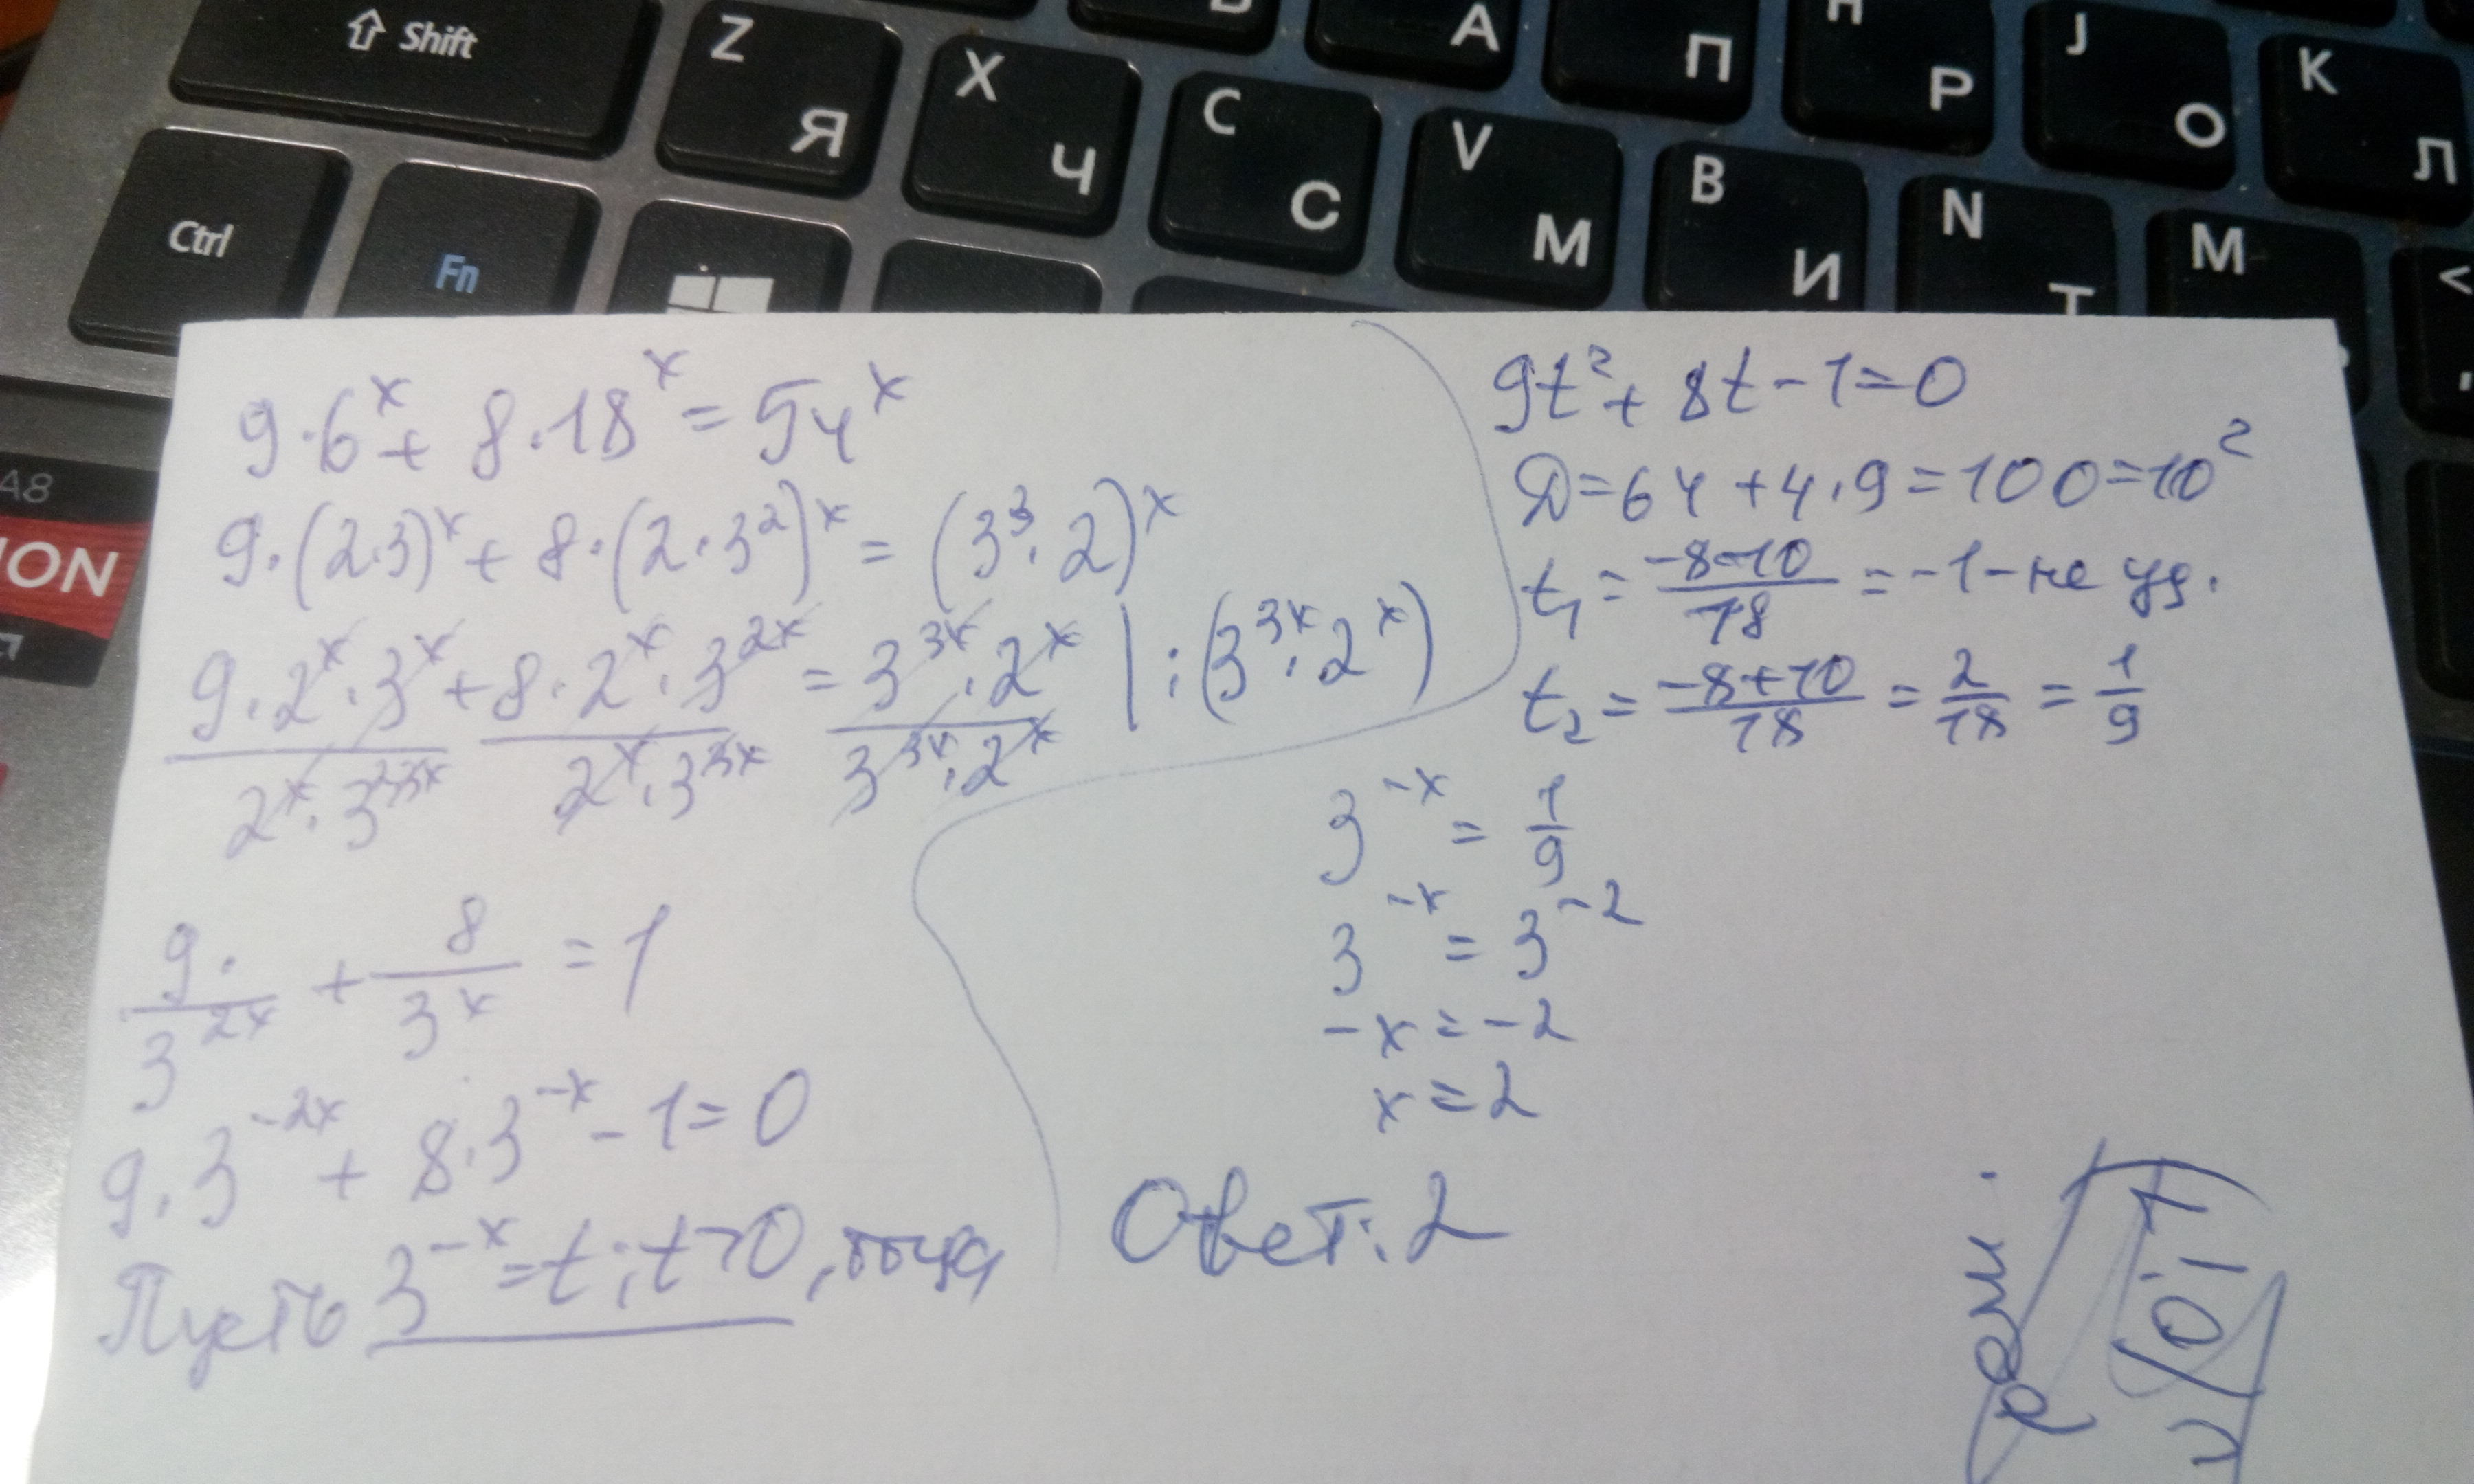 ⇧ Shift
Z Я
X Ч
C С
А
V М
П
B И
Р
N Т
J О
M
K Л
<
Ctrl
Fn
A8
ION
9·6^x + 8·18^x = 54^x
9·(2·3)^x + 8·(2·3^2)^x = (3^3·2)^x
9·2^x·3^x/(2^x·3^3x) + 8·2^x·3^2x/(2^x·3^3x) = 3^3x·2^x/(3^3x·2^x) | :(3^3x·2^x)
9·/3^2x + 8/3^x = 1
9·3^-2x + 8·3^-x - 1 = 0
Пусть 3^-x = t; t>0, тогда
9t^2 + 8t - 1 = 0
D = 64 + 4·9 = 100 = 10^2
t1 = (-8-10)/18 = -1 - не уд.
t2 = (-8+10)/18 = 2/18 = 1/9
3^-x = 1/9
3^-x = 3^-2
-x = -2
x = 2
Ответ: 2